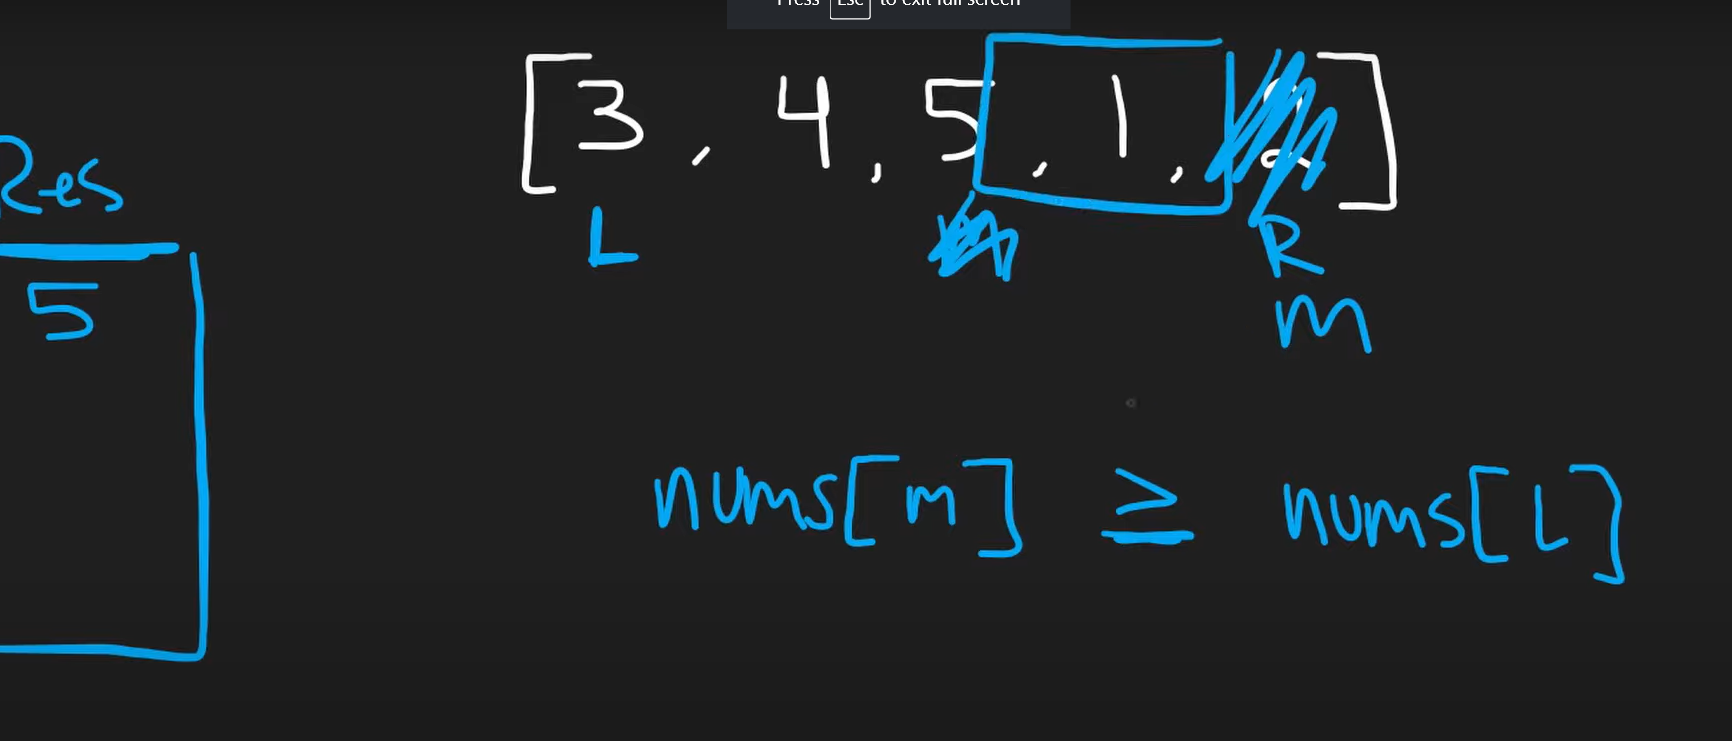 Press Esc to exit full screen
[3, 4, 5, 1, 2]
Res
L
R
5
m
nums[m] ≥ nums[L]